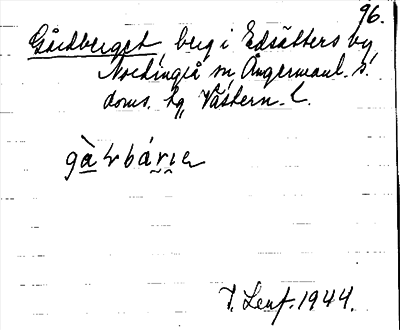 96.
Gårdberget, berg i Edsätters by,
Nordingrå sn, Ångermanl. s.
doms. hg, Västern. L.
T. Lenf. 1944.